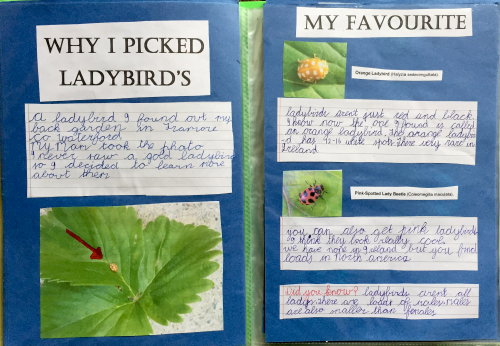 WHY I PICKED
LADYBIRD'S
A ladybird I found out my
back garden in Tramore
Co waterford
My Mam took the photo
I never saw a gold ladybird
so I decided to learn more
about them
MY FAVOURITE
Orange Ladybird (Halyzia sedecimguttata)
ladybirds arent just red and black.
I know now the one I found is called
an orange ladybird. The orange ladybir
d has 12-16 white spots. There very rare in
Ireland
Pink-Spotted Lady Beetle (Coleomegilla maculata).
you can also get pink ladybirds
I think they look really cool.
we have none in Ireland but you find
loads in North america
Did you know? ladybirds arent all
ladys. there are loads of males. Males
are also smaller than females